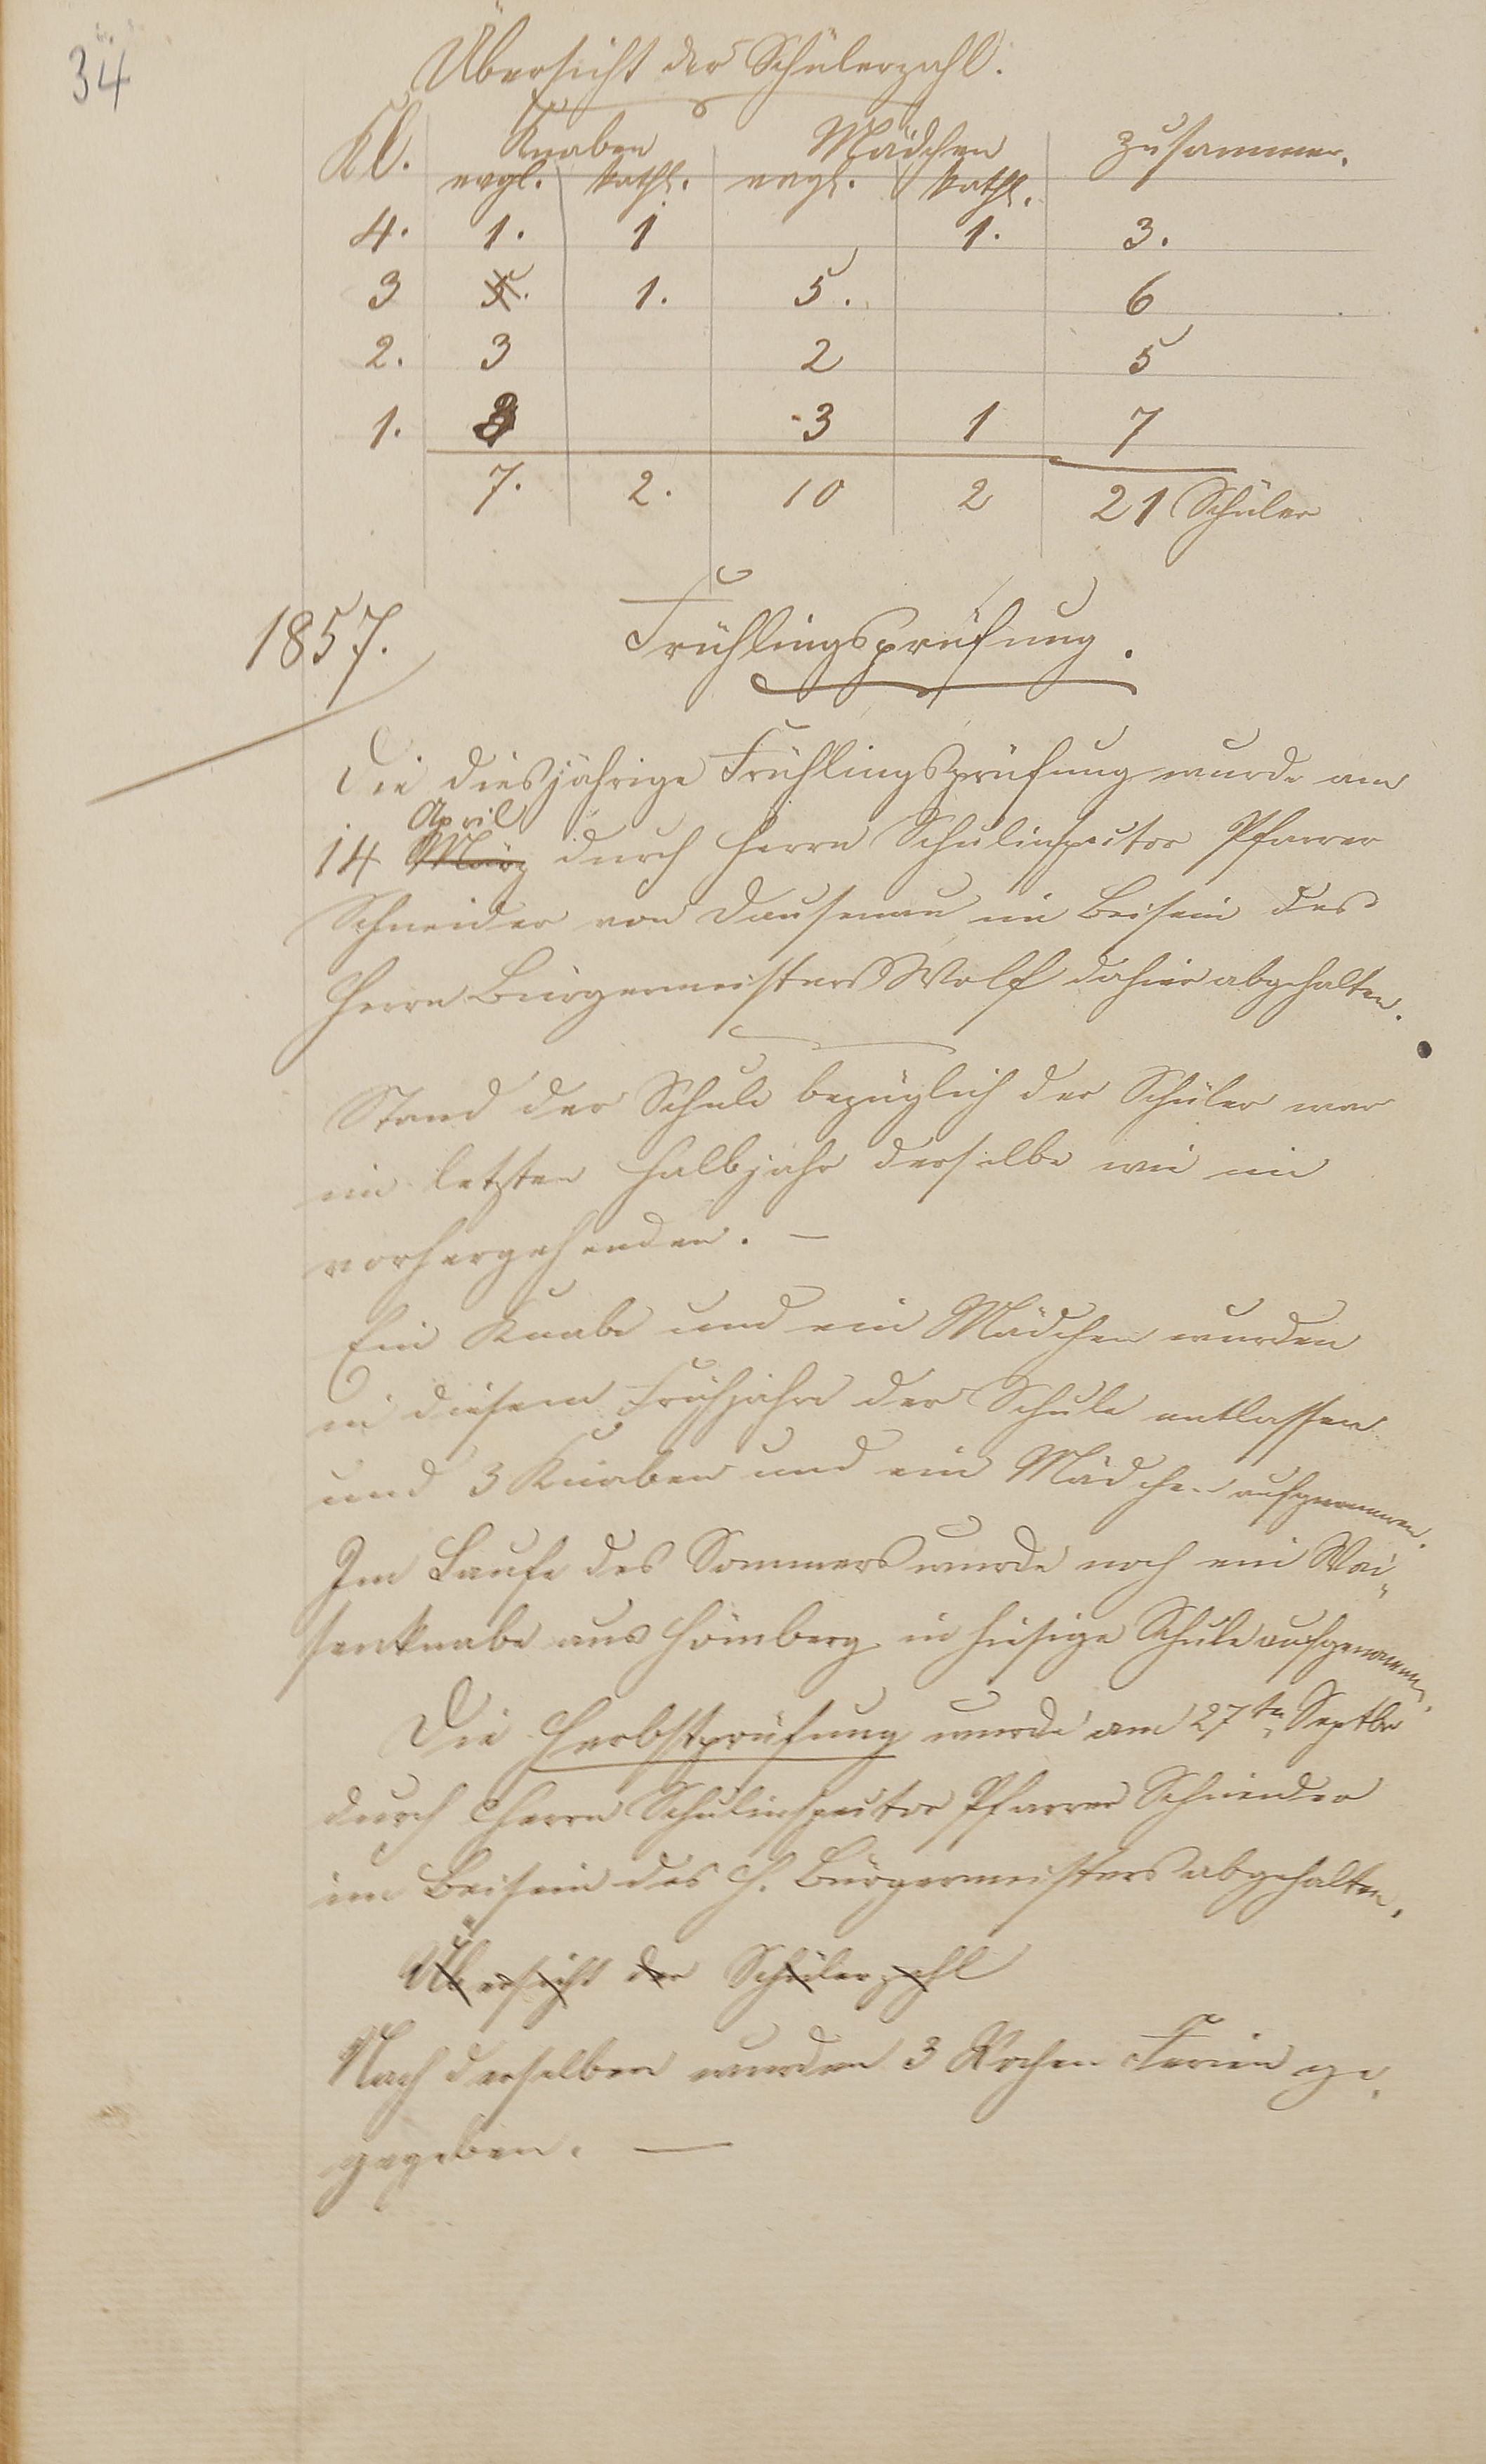 34
Übersicht der Schülerzahl.
Kl. Knaben Mädchen zusammen.
evgl. kathl. evgl. kathl.
4. 1. 1 1. 3.
3 5. 1. 5. 6
2. 3 2 5
1. 3 3 1 7
7. 2. 10 2 21 Schüler
1857. Frühlingsprüfung.
Die diesjährige Frühlingsprüfung wurde am
April
14 März durch Herrn Schulinspector Pfarrer
Schneider von Dausenau im Beisein des
Herrn Bürgermeisters Wolf dahier abgehalten.
Stand der Schule bezüglich der Schüler war
im letzten Halbjahr derselbe wie im
vorhergehenden. —
Ein Knabe und ein Mädchen wurden
in diesem Frühjahre der Schule entlassen
und 3 Knaben und ein Mädchen aufgenommen.
Im Laufe des Sommers wurde noch ein Wai-
senknabe aus Hömberg in hiesige Schule aufgenommen.
Die Herbstprüfung wurde am 27ten Septbr
durch Herrn Schulinspector Pfarrer Schneider
im Beisein des H. Bürgermeisters abgehalten.
Übersicht der Schülerzahl
Nach derselben wurden 3 Wochen Ferien ge-
gegeben. —